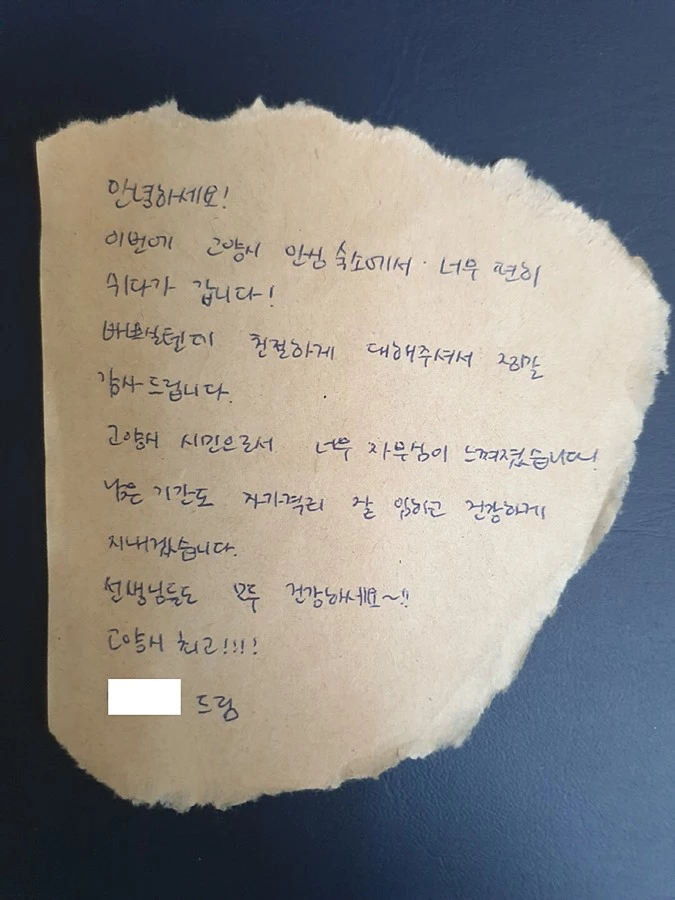 안녕하세요!
이번에 고양시 안심 숙소에서 너무 편히
쉬다가 갑니다!
바쁘실텐데 친절하게 대해주셔서 정말
감사드립니다.
고양시 시민으로서 너무 자부심이 느껴졌습니다!
남은 기간도 자가격리 잘 임하고 건강하게
지내겠습니다.
선생님들도 모두 건강하세요~!!
고양시 최고!!!!
드림